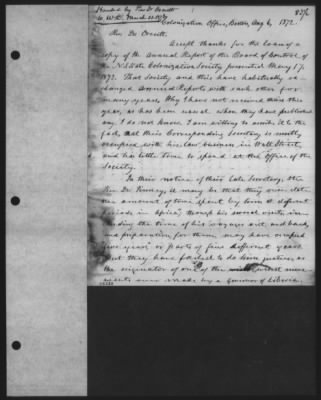 Handed by Rev Dr Orcutt
to W.C. March 10 1873
Colonization Office, Boston, Aug 6, 1872.
Rev. Dr Orcutt
Accept thanks for the loan of a
copy of the Annual Report of the Board of Control of
the N.Y. State Colonization Society presented May 17,
1872. That Society and this have habitually ex-
changed Annual Reports with each other for
many years. Why I have not received one this
year, as has been usual when they have published
any, I do not know. I am willing to ascribe it to the
fact, that their Corresponding Secretary is mostly
occupied with his law business in Wall Street,
and has little time to spend at the Office of the
Society.
In their notice of their late Secretary, the
Rev Dr Pinney, it may be that they over state
the amount of time spent by him at different
periods in Africa; though his several visits, in-
cluding the time of his voyages out, and back,
and preparation for them may have occupied
five years or parts of five different years.
But they have failed to do him justice, as
the originator of one of the wisest move-
ments ever made by a Governor of Liberia,